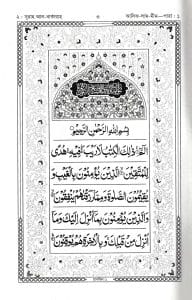 সূরাহ আল-বাকারাহ আলিফ-লাম-মীম—পারা : ১
بِسْمِ اللهِ الرَّحْمٰنِ الرَّحِيْمِ
الٓمّٓ ۚ ذٰلِكَ الْكِتٰبُ لَا رَيْبَ ۛ فِيْهِ ۛ هُدًى
لِّلْمُتَّقِيْنَ ۙ الَّذِيْنَ يُؤْمِنُوْنَ بِالْغَيْبِ وَ
يُقِيْمُوْنَ الصَّلٰوةَ وَمِمَّا رَزَقْنٰهُمْ يُنْفِقُوْنَ ۙ
وَالَّذِيْنَ يُؤْمِنُوْنَ بِمَآ اُنْزِلَ اِلَيْكَ وَمَآ
اُنْزِلَ مِنْ قَبْلِكَ ۚ وَبِالْاٰخِرَةِ هُمْ يُوْقِنُوْنَ